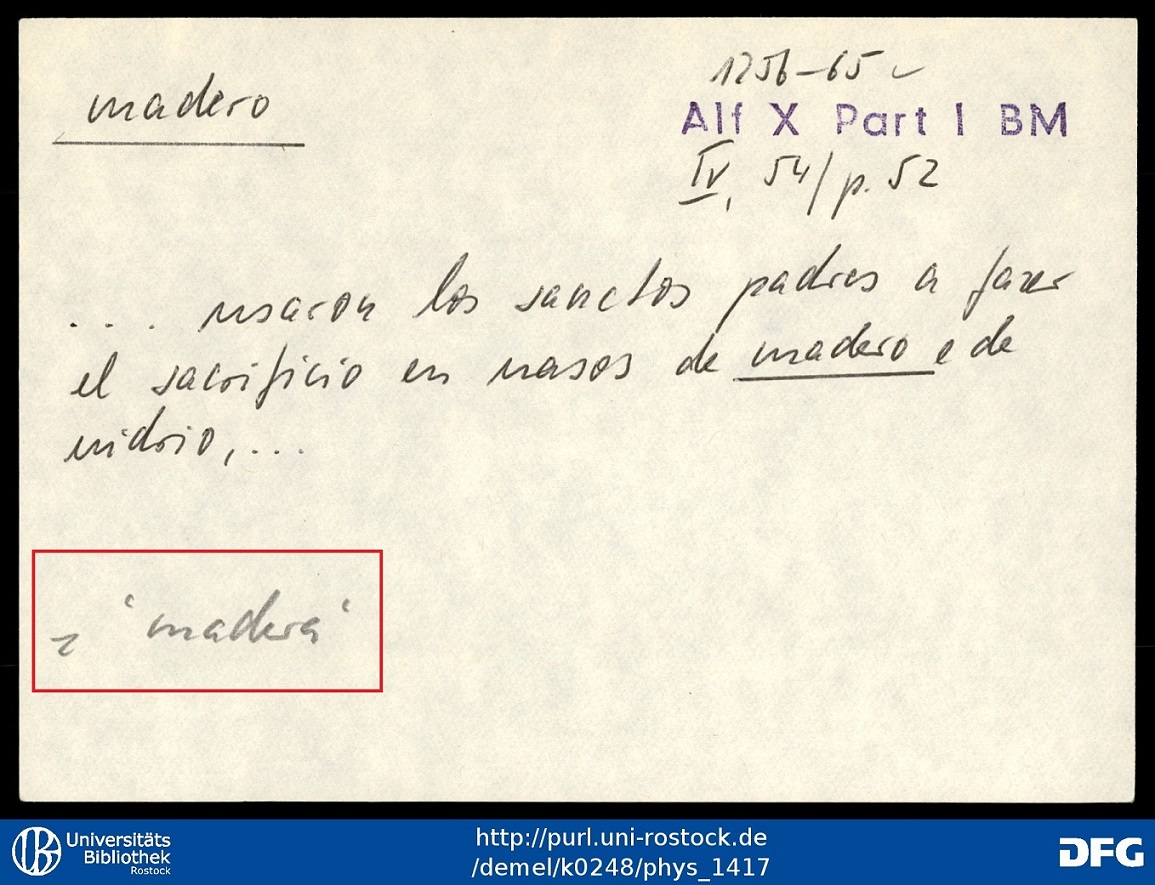 madero
1256-65
Alf X Part I BM
IV, 54/p. 52
... usaron los sanctos padres a fazer
el sacrificio en uasos de madero e de
uidrio, ...
'madera'
Universitäts
Bibliothek
Rostock
http://purl.uni-rostock.de
/demel/k0248/phys_1417
DFG